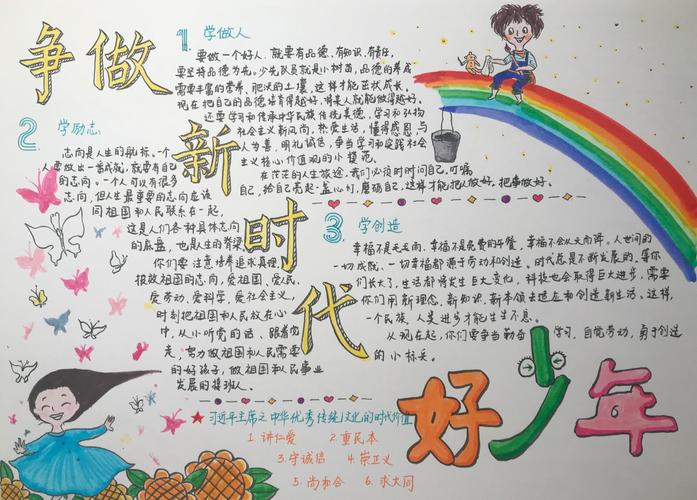 争做
新
时
代
好少年
1. 学做人
要做一个好人,就要有品德、有知识、有责任,
要坚持品德为先。少先队员就是小树苗,品德的养成
需要丰富的营养、肥沃的土壤,这样才能茁壮成长。
现在把自己的品德培育得越好,将来人就能做得越好。
还要学习和传承中华民族传统美德,学习和弘扬
社会主义新风尚,热爱生活,懂得感恩,与
人为善,明礼诚信,争当学习和实践社会
主义核心价值观的小模范。
在茫茫的人生旅途,我们必须时时问自己,叮嘱
自己,给自己亮起一盏心灯,磨砺自己,这样才能把人做好,把事做好。
2. 学励志
志向是人生的航标。一个
人要做出一番成就,就要有自己
的志向。一个人可以有很多
志向,但人生最重要的志向应该
同祖国和人民联系在一起,
这是人们各种具体志向
的底盘,也是人生的脊梁。
你们要注意培养追求真理、
报效祖国的志向,爱祖国、爱人民、
爱劳动、爱科学、爱社会主义,
时刻把祖国和人民放在心
中,从小听党的话、跟着党
走,努力做祖国和人民需要
的好孩子,做祖国和人民事业
发展的接班人。
3. 学创造
幸福不是毛毛雨,幸福不是免费的午餐,幸福不会从天而降。人世间的
一切成就、一切幸福都源于劳动和创造。时代总是不断发展的,等你
们长大了,生活都将发生巨大变化,科技也会取得巨大进步,需要
你们用新理念、新知识、新本领去适应和创造新生活。这样,
一个民族、人类进步才能生生不息。
从现在起,你们要争当勤奋学习、自觉劳动、勇于创造
的小标兵。
★习近平主席之中华优秀传统文化的时代价值
1. 讲仁爱 2. 重民本
3. 守诚信 4. 崇正义
5. 尚和合 6. 求大同